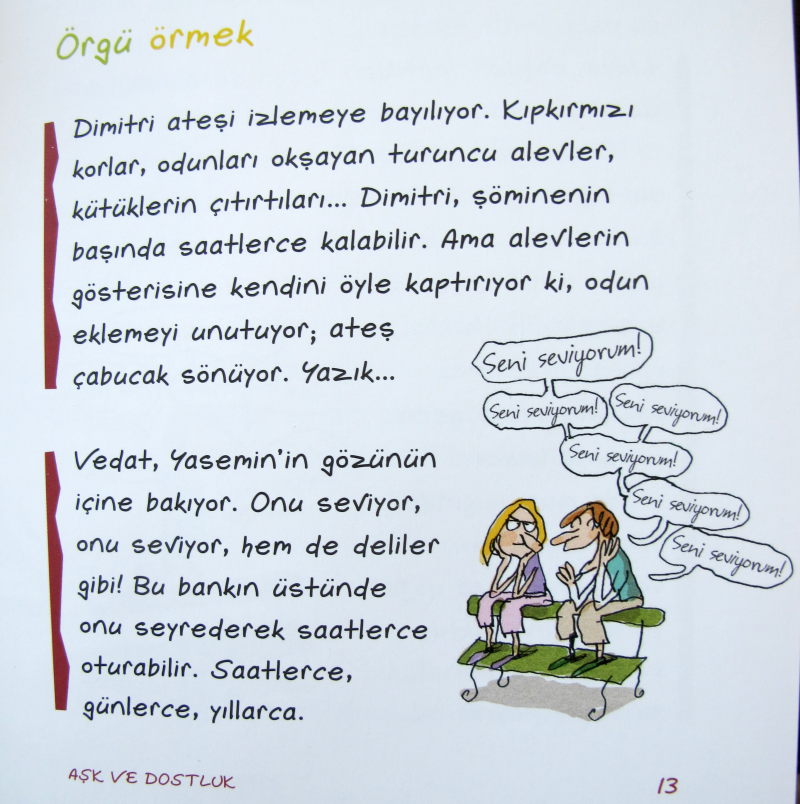 Örgü örmek
Dimitri ateşi izlemeye bayılıyor. Kıpkırmızı
korlar, odunları okşayan turuncu alevler,
kütüklerin çıtırtıları... Dimitri, şöminenin
başında saatlerce kalabilir. Ama alevlerin
gösterisine kendini öyle kaptırıyor ki, odun
eklemeyi unutuyor; ateş
çabucak sönüyor. Yazık...
Vedat, Yasemin'in gözünün
içine bakıyor. Onu seviyor,
onu seviyor, hem de deliler
gibi! Bu bankın üstünde
onu seyrederek saatlerce
oturabilir. Saatlerce,
günlerce, yıllarca.
Seni seviyorum!
Seni seviyorum!
Seni seviyorum!
Seni seviyorum!
Seni seviyorum!
Seni seviyorum!
AŞK VE DOSTLUK
13